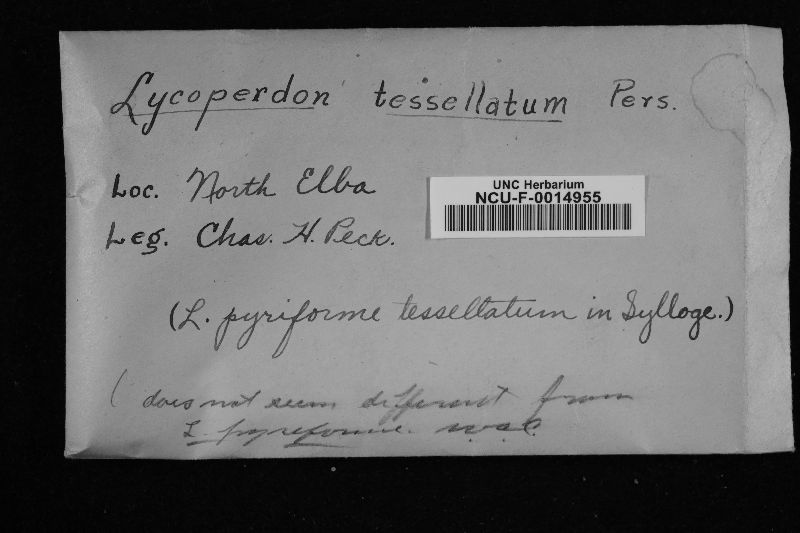 Lycoperdon tessellatum Pers.
Loc. North Elba
UNC Herbarium
NCU-F-0014955
Leg. Chas. H. Peck.
(L. pyriforme tessellatum in Sylloge.)
( does not seem different from
L pyriforme. W.C.C.